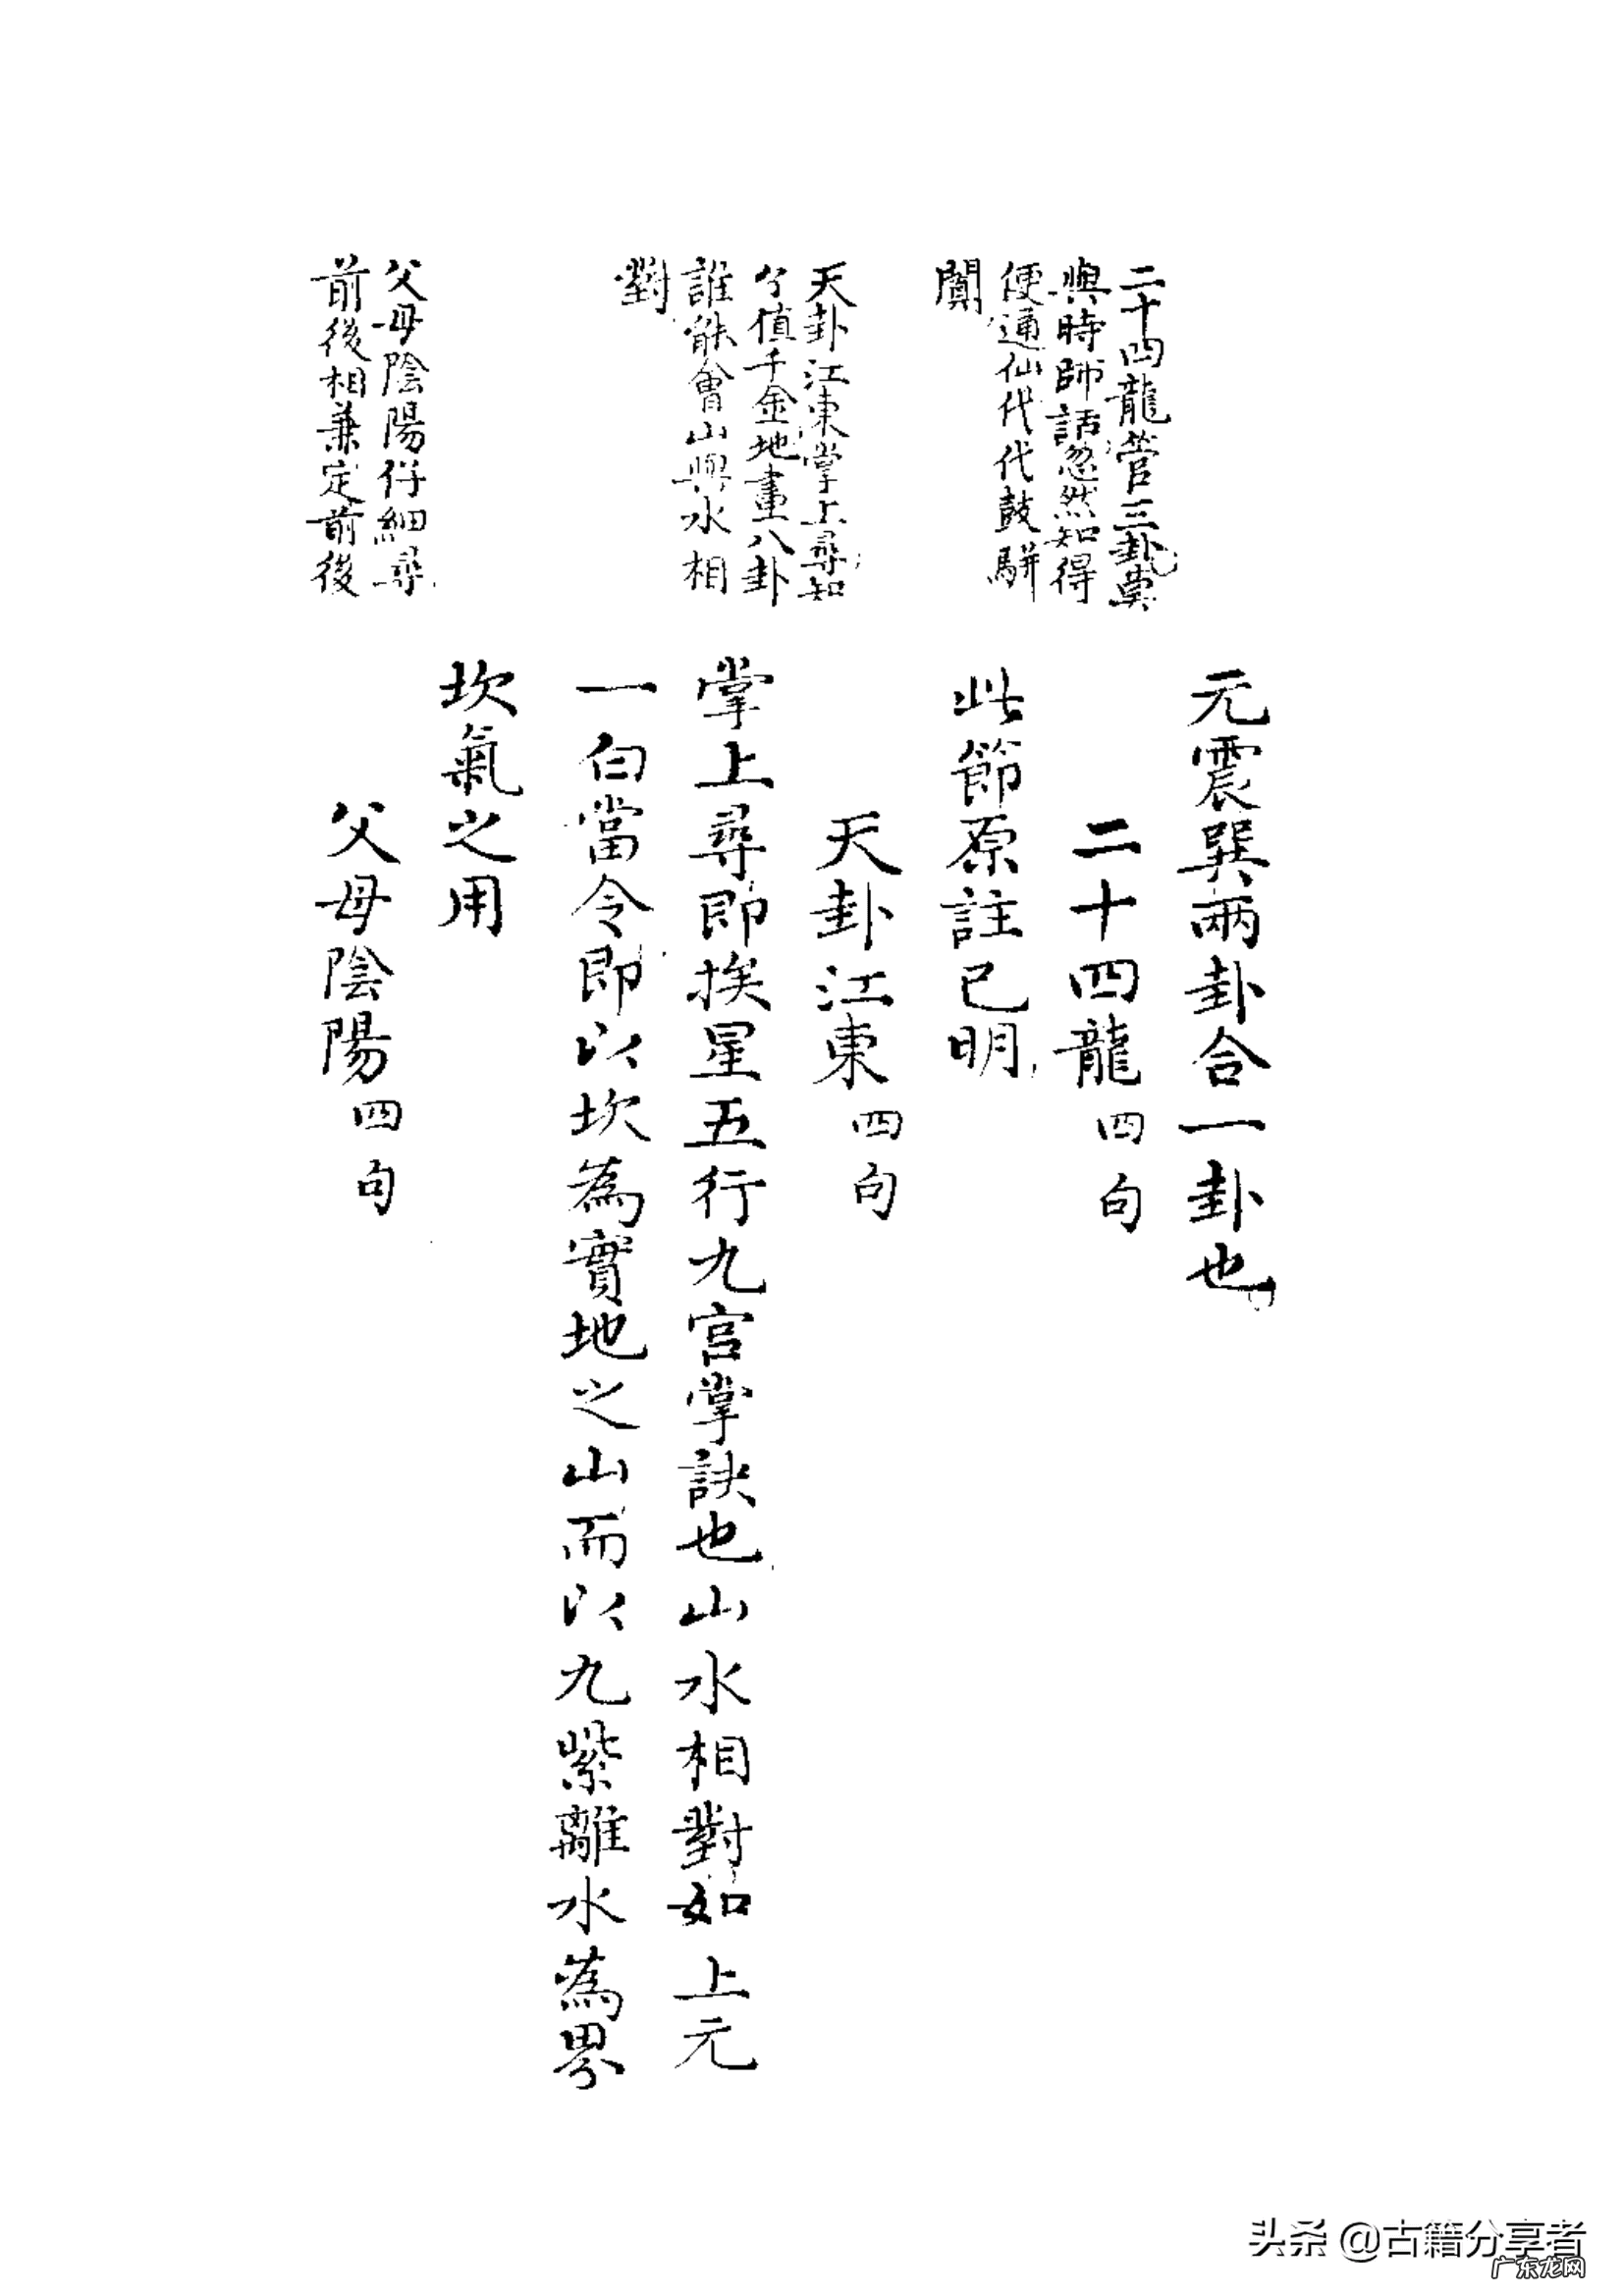 二十四龍管三卦莫
與時師話忽然知得
便通仙代代鼓駢
闐
天卦江東掌上尋知
值千金地畫八卦
誰能會山與水相
對
父母陰陽仔細尋
前後相兼定前後
元震巽兩卦合一卦也
二十四龍四句
此節原註已明
天卦江東四句
掌上尋即挨星五行九宮掌訣也山水相對如上元
一白當令即以坎為實地之山而以九紫離水為界
坎氣之用
父母陰陽四句
头条 @古籍分享者
广东龙网